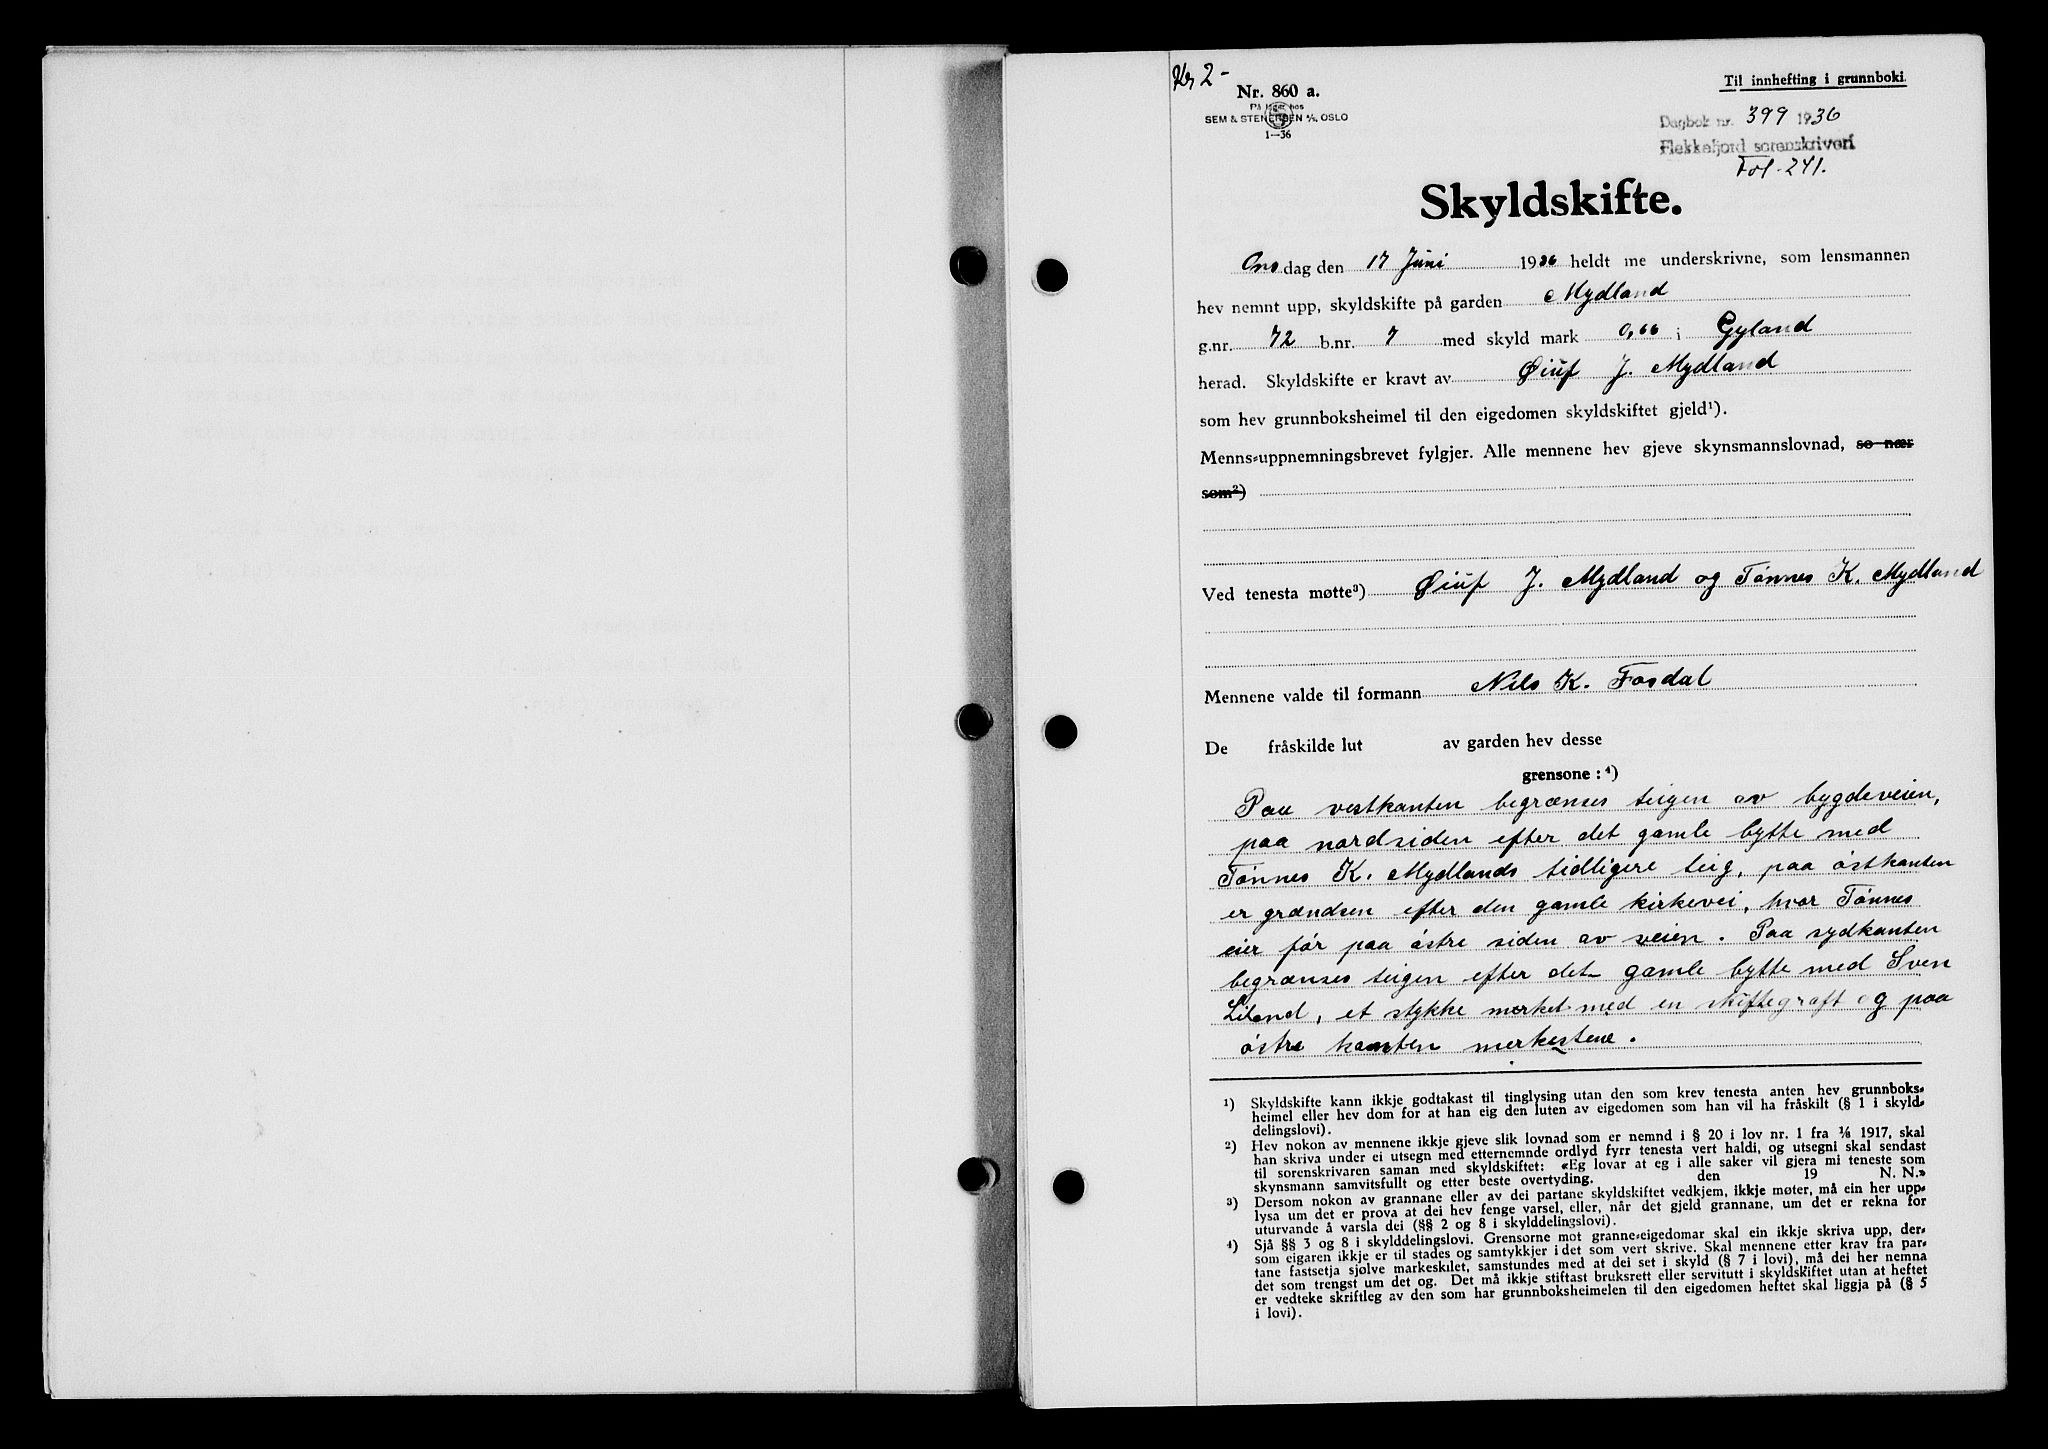 Kr 2-
Nr. 860 a.
På lager hos
SEM & STENERSEN A/S, OSLO
1—36
Til innhefting i grunnboki.
Dagbok nr. 399 1936
Flekkefjord sorenskriveri
Fol. 241.
Skyldskifte.
Onsdag den 17 Juni 1936 heldt me underskrivne, som lensmannen
hev nemnt upp, skyldskifte på garden Mydland
g.nr. 72 b.nr. 7 med skyld mark 0,66 i Gyland
herad. Skyldskifte er kravt av Øiuf J. Mydland
som hev grunnboksheimel til den eigedomen skyldskiftet gjeld¹).
Menns-uppnemningsbrevet fylgjer. Alle mennene hev gjeve skynsmannslovnad, so nær
som²)
Ved tenesta møtte³) Øiuf J. Mydland og Tønnes K. Mydland
Mennene valde til formann Nils K. Fosdal
De fråskilde lut av garden hev desse
grensone: ⁴)
Paa vestkanten begrænses teigen av bygdeveien,
paa nordsiden efter det gamle bytte med
Tønnes K. Mydlands tidligere teig, paa østkanten
er grændsen efter den gamle kirkevei, hvor Tønnes
eier før paa østre siden av veien. Paa sydkanten
begrænses teigen efter det gamle bytte med Sven
Liland, et stykke merket med en skiftegraft og paa
østre kanten merkestene.
¹) Skyldskifte kann ikkje godtakast til tinglysing utan den som krev tenesta anten hev grunnboks-
heimel eller hev dom for at han eig den luten av eigedomen som han vil ha fråskilt (§ 1 i skyld-
delingslovi).
²) Hev nokon av mennene ikkje gjeve slik lovnad som er nemnd i § 20 i lov nr. 1 fra 1/6 1917, skal
han skriva under ei utsegn med etternemnde ordlyd fyrr tenesta vert haldi, og utsegni skal sendast
til sorenskrivaren saman med skyldskiftet: «Eg lovar at eg i alle saker vil gjera mi teneste som
skynsmann samvitsfullt og etter beste overtyding. den 19 N. N.»
³) Dersom nokon av grannane eller av dei partane skyldskiftet vedkjem, ikkje møter, må ein her upp-
lysa um det er prova at dei hev fenge varsel, eller, når det gjeld grannane, um det er rekna for
uturvande å varsla dei (§§ 2 og 8 i skylddelingslovi).
⁴) Sjå §§ 3 og 8 i skylddelingslovi. Grensorne mot granne-eigedomar skal ein ikkje skriva upp, der-
som eigaren ikkje er til stades og samtykkjer i det som vert skrive. Skal mennene etter krav fra par-
tane fastsetja sjølve markeskilet, samstundes med at dei set i skyld (§ 7 i lovi), må dei her nemna
det som trengst um det og. Det må ikkje stiftast bruksrett eller servitutt i skyldskiftet utan at heftet
er vedteke skriftleg av den som har grunnboksheimelen til den eigedomen heftet skal liggja på (§ 5
i lovi).